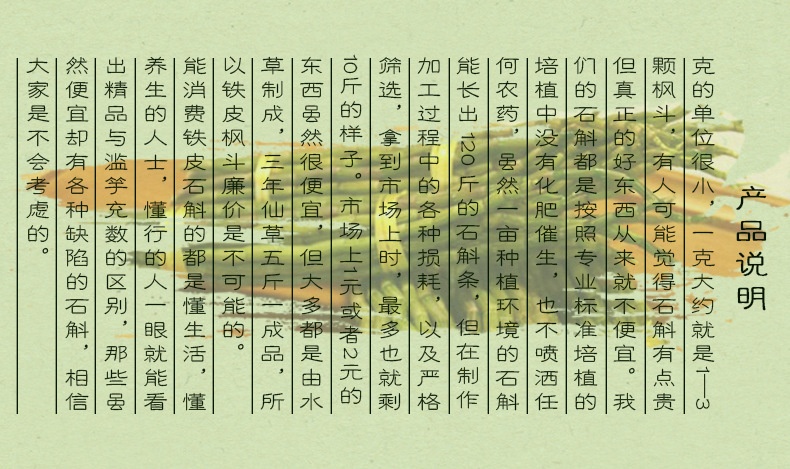 产品说明
克的单位很小，一克大约就是1—3
颗枫斗，有人可能觉得石斛有点贵
但真正的好东西从来就不便宜。我
们的石斛都是按照专业标准培植的
培植中没有化肥催生，也不喷洒任
何农药，虽然一亩种植环境的石斛
能长出120斤的石斛条，但在制作
加工过程中的各种损耗，以及严格
筛选，拿到市场上时，最多也就剩
10斤的样子。市场上1元或者2元的
东西虽然很便宜，但大多都是由水
草制成，三年仙草五斤一成品，所
以铁皮枫斗廉价是不可能的。
能消费铁皮石斛的都是懂生活，懂
养生的人士，懂行的人一眼就能看
出精品与滥竽充数的区别，那些虽
然便宜却有各种缺陷的石斛，相信
大家是不会考虑的。